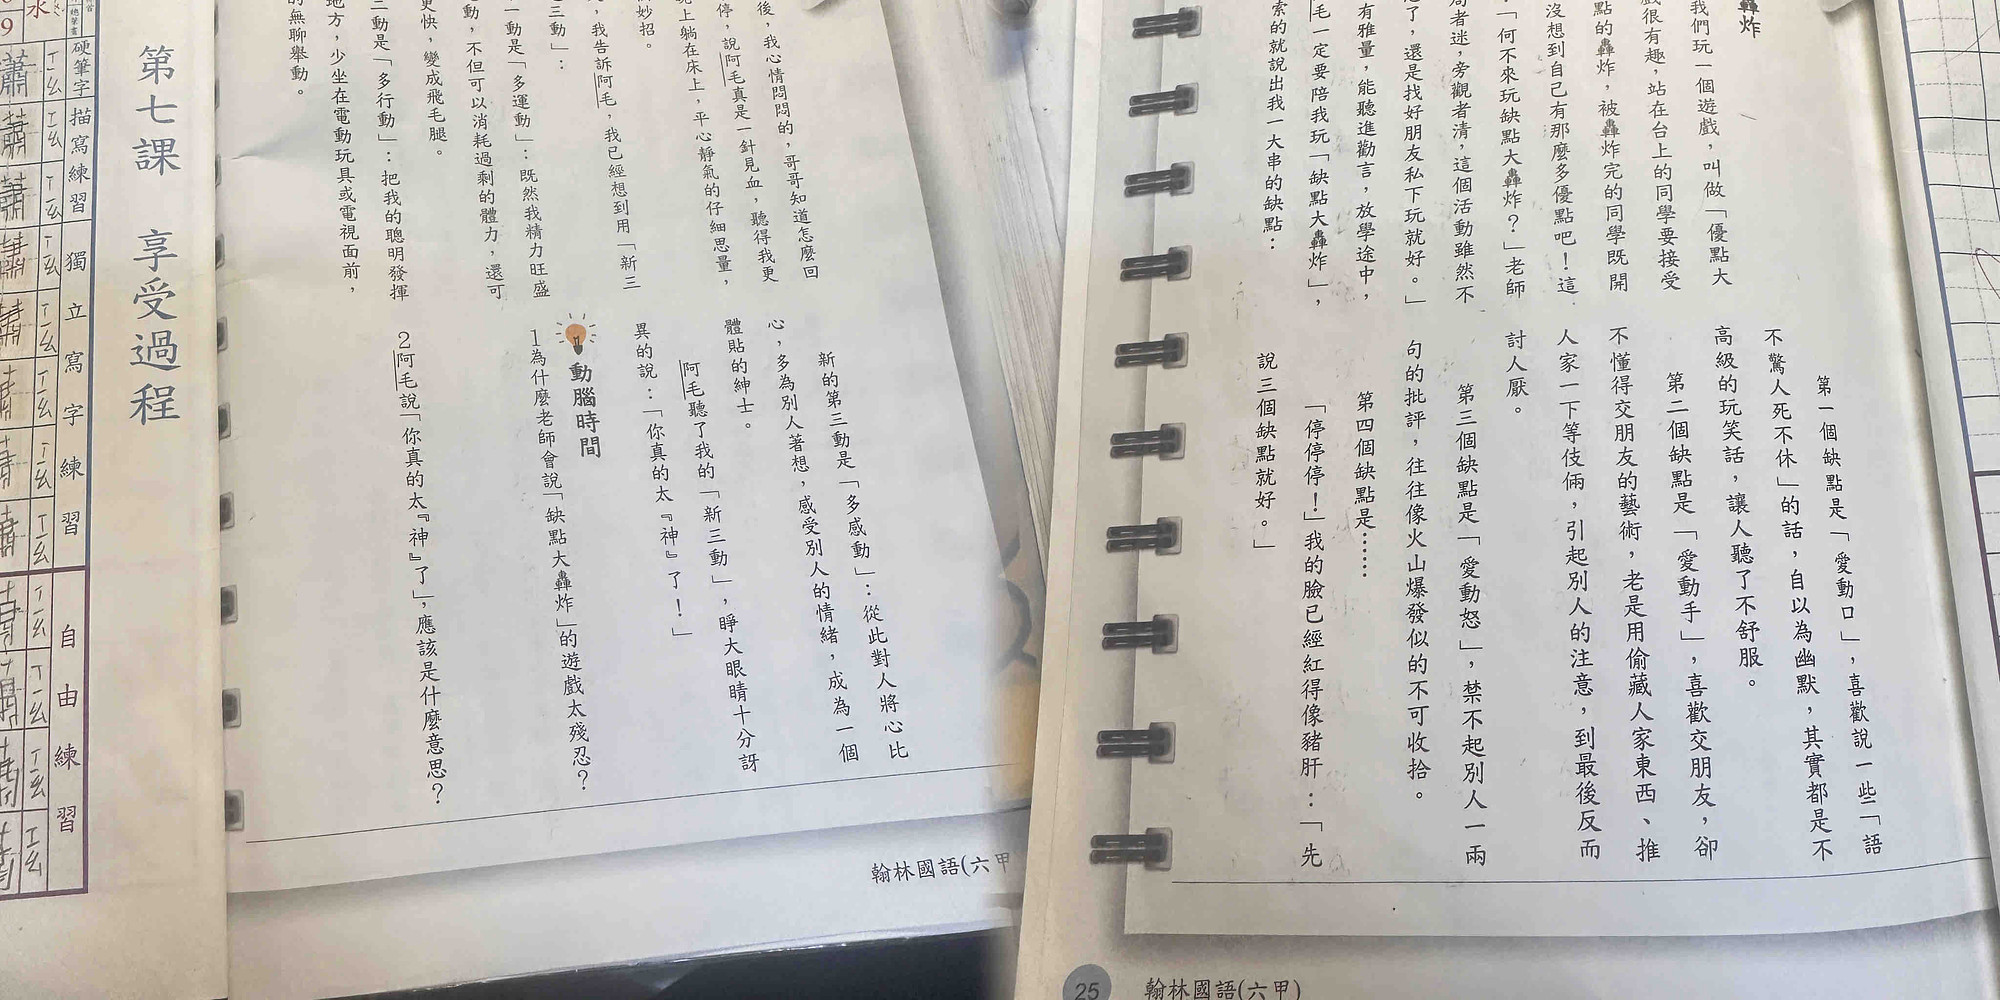 轟炸
我們玩一個遊戲，叫做「優點大
戲很有趣，站在台上的同學要接受
點的轟炸，被轟炸完的同學既開
沒想到自己有那麼多優點吧！這
：「何不來玩缺點大轟炸？」老師
局者迷，旁觀者清，這個活動雖然不
忍了，還是找好朋友私下玩就好。」
有雅量，能聽進勸言，放學途中，
毛一定要陪我玩「缺點大轟炸」，
索的就說出我一大串的缺點：
第一個缺點是「愛動口」，喜歡說一些「語
不驚人死不休」的話，自以為幽默，其實都是不
高級的玩笑話，讓人聽了不舒服。
第二個缺點是「愛動手」，喜歡交朋友，卻
不懂得交朋友的藝術，老是用偷藏人家東西、推
人家一下等伎倆，引起別人的注意，到最後反而
討人厭。
第三個缺點是「愛動怒」，禁不起別人一兩
句的批評，往往像火山爆發似的不可收拾。
第四個缺點是……
「停停停！」我的臉已經紅得像豬肝：「先
說三個缺點就好。」
25
翰林國語(六甲)
後，我心情悶悶的，哥哥知道怎麼回
停，說阿毛真是一針見血，聽得我更
晚上躺在床上，平心靜氣的仔細思量，
妙招。
，我告訴阿毛，我已經想到用「新三
三動」：
一動是「多運動」：既然我精力旺盛
動，不但可以消耗過剩的體力，還可
更快，變成飛毛腿。
二動是「多行動」：把我的聰明發揮
地方，少坐在電動玩具或電視面前，
的無聊舉動。
新的第三動是「多感動」：從此對人將心比
心，多為別人著想，感受別人的情緒，成為一個
體貼的紳士。
阿毛聽了我的「新三動」，睜大眼睛十分訝
異的說：「你真的太『神』了！」
動腦時間
1為什麼老師會說「缺點大轟炸」的遊戲太殘忍？
2阿毛說「你真的太『神』了」，應該是什麼意思？
翰林國語(六甲
第七課 享受過程
硬筆字描寫練習
獨立寫字練習
自由練習